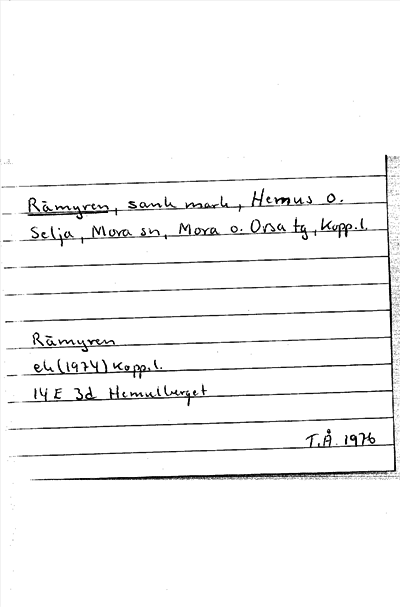 Råmyren, sank mark, Hemus o.
Selja, Mora sn, Mora o. Orsa tg, Kopp.l.
Råmyren
ek (1974) Kopp.l.
14 E 3d Hemulberget
T.Å. 1976